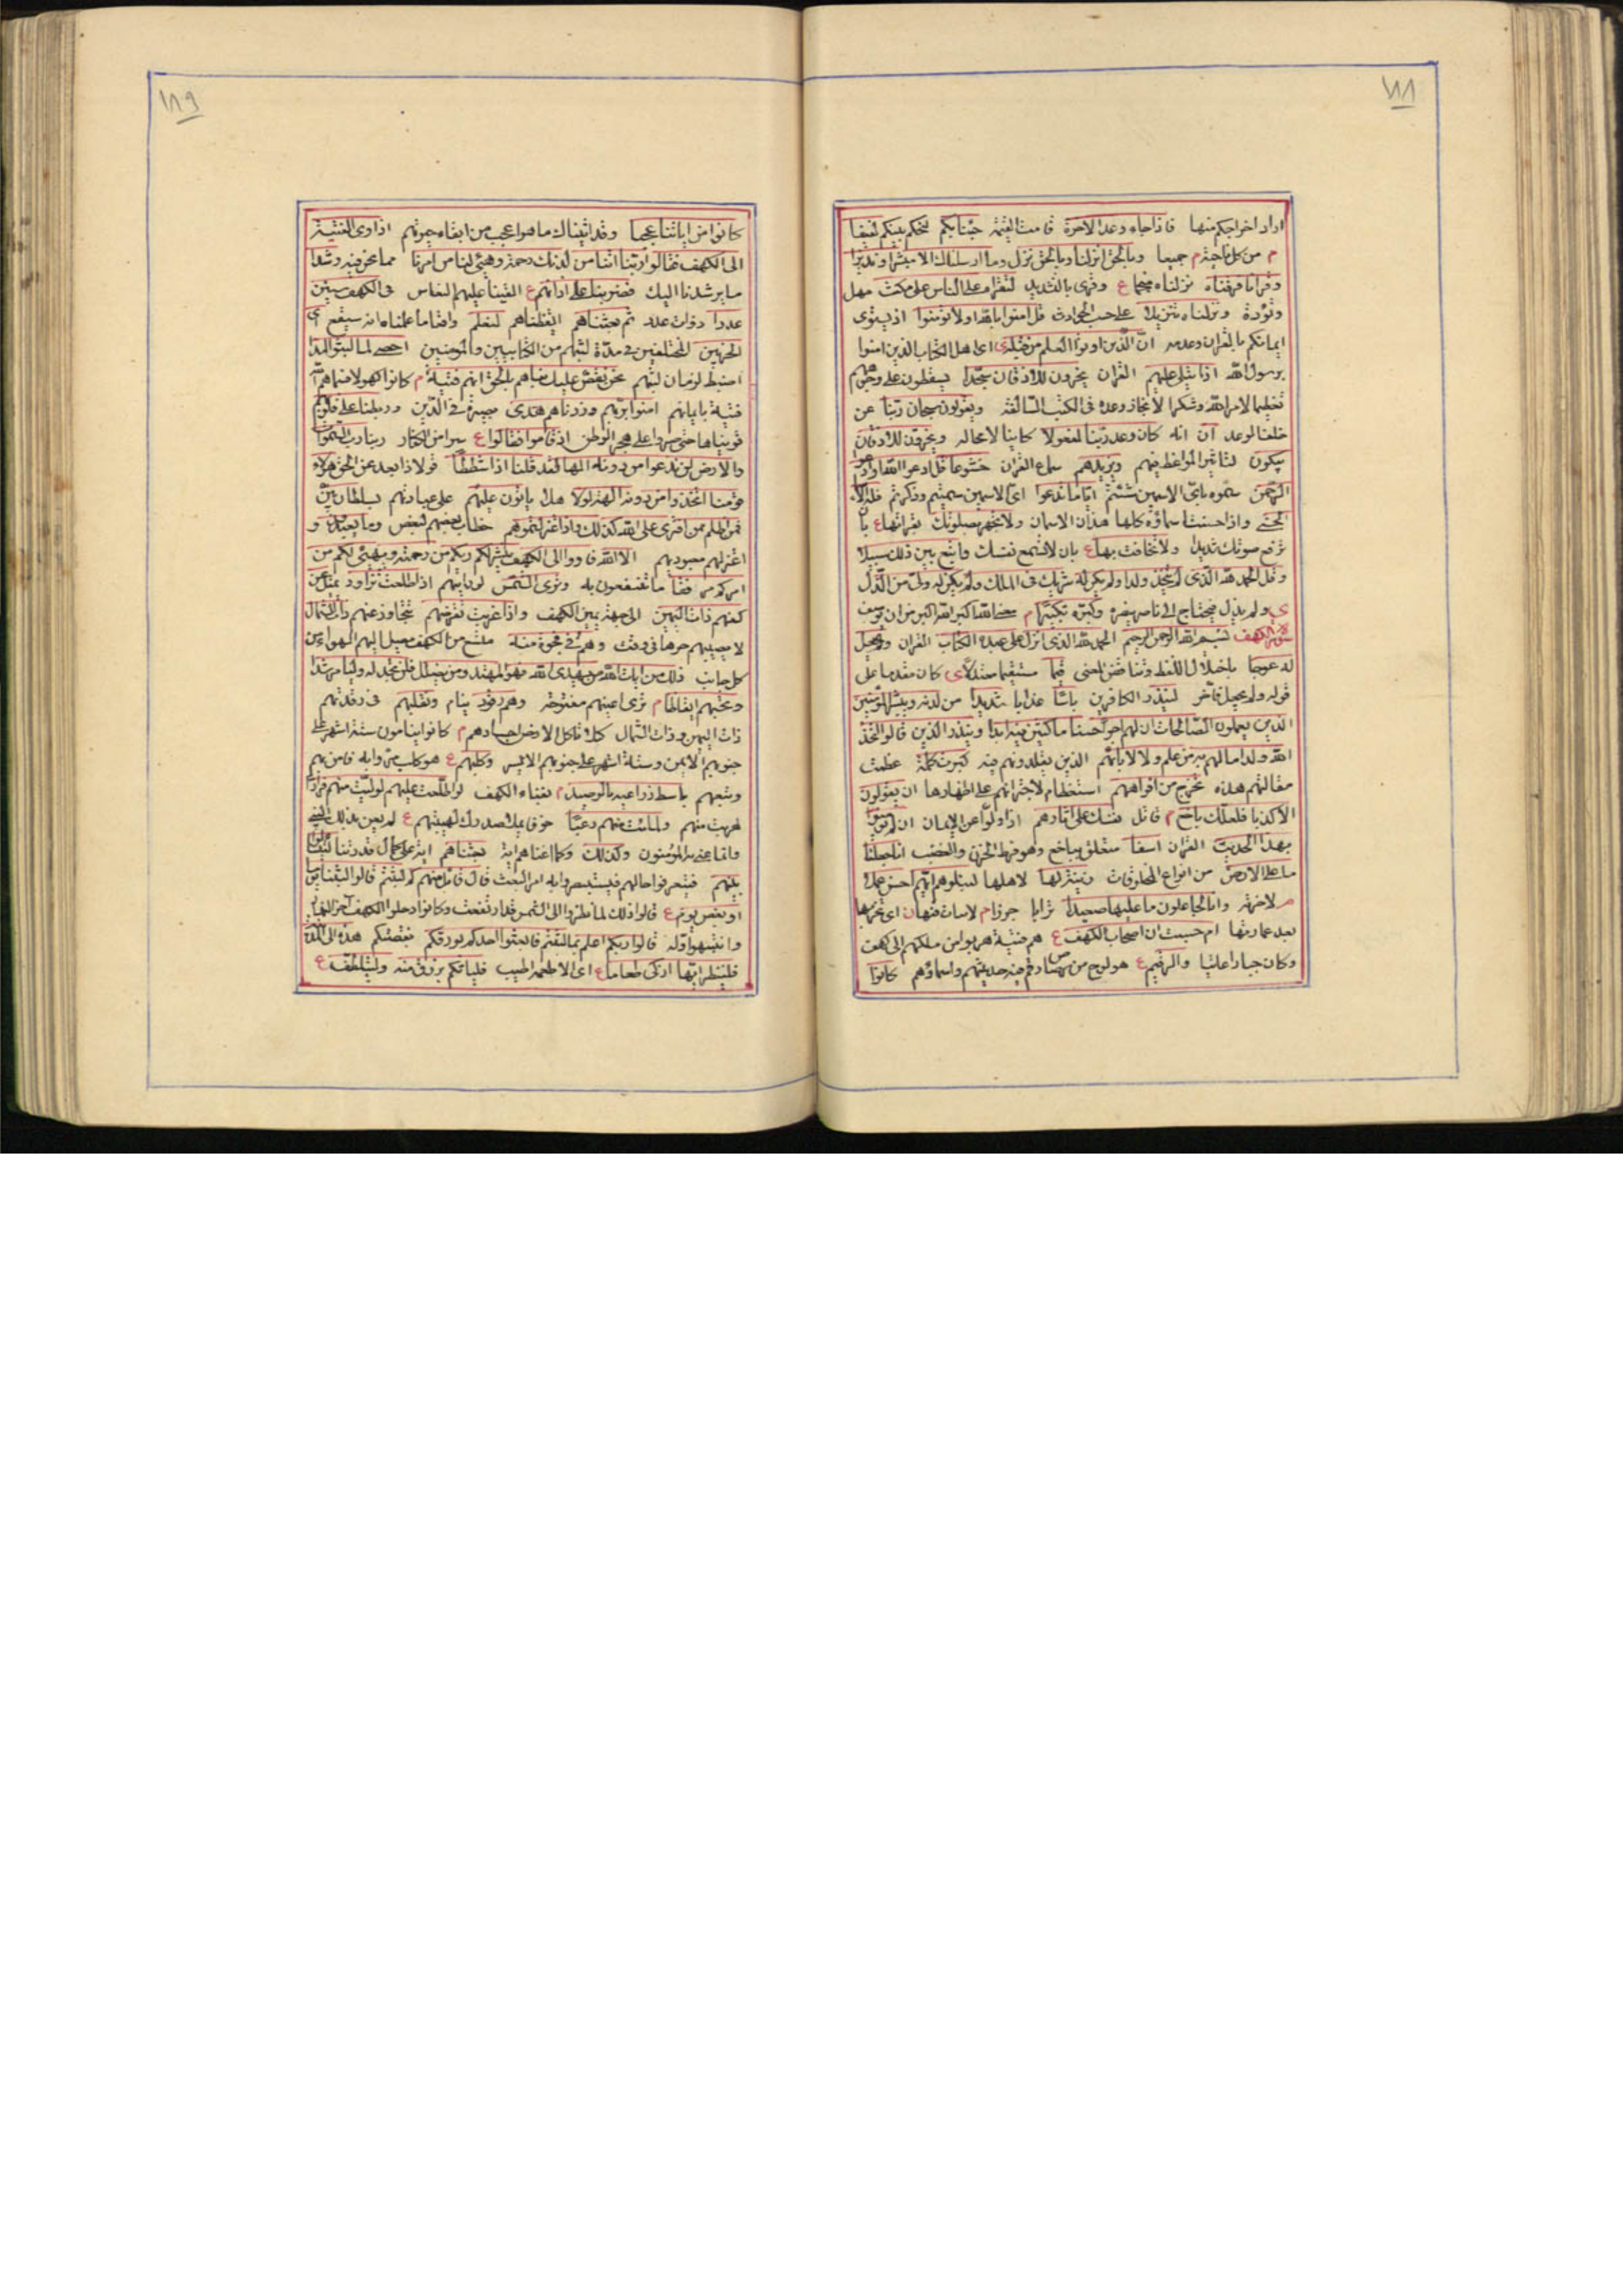 ١٨٨
اراد اخراجكم منها فاذا جاء وعد الاخرة قامت القيمة جئنا بكم لتحكم بينكم لفيفا
م من كل ناحية م جميعا وبالحق انزلناه وبالحق نزل وما ارسلناك الا مبشرا ونذيرا
وقرانا فرقناه نزلناه منجما ع وقرئ بالتشديد لتقراه على الناس على مكث مهل
وتؤدة ونزلناه تنزيلا على حسب الحوادث قل امنوا به او لا تؤمنوا اذ يستوى
ايمانكم بالقران وعدمه ان الذين اوتوا العلم من قبله ى اى اهل الكتاب الذين امنوا
برسول الله اذا يتلى عليهم القران يخرون للاذقان سجدا يسقطون على وجوههم
تعظيما لامر الله وشكرا لانجاز وعده فى الكتب السالفة ويقولون سبحان ربنا عن
خلف الوعد ان انه كان وعد ربنا لمفعولا كاينا لا محاله ويخرون للاذقان
يبكون لتاثير المواعظ فيهم ويزيدهم سماع القران خشوعا قل ادعوا الله او ادعو
الرحمن سموه باى الاسمين شئتم ايا ما تدعوا اى الاسمين سميتم وذكرتم فله الاسماء
الحسنى واذا حسنت اسماؤه كلها هذان الاسمان ولا تجهر بصلوتك بقرائتها ع بان
ترفع صوتك شديدا ولا تخافت بها ع بان لا تسمع نفسك وابتغ بين ذلك سبيلا
وقل الحمد لله الذى لم يتخذ ولدا ولم يكن له شريك فى الملك ولم يكن له ولى من الذل
ى ولم يذل فيحتاج الى ناصر ينصره وكبره تكبيرا م معنى الله اكبر الله اكبر من ان يوصف
سورة الكهف بسم الله الرحمن الرحيم الحمد لله الذى انزل على عبده الكتاب القران ولم يجعل
له عوجا باختلال اللفظ وتناقض المعنى قيما مستقيما معتدلا ى كان مقدما على
قوله ولم يجعل فاخر لينذر الكافرين باسا عذابا شديدا من لدنه ويبشر المؤمنين
الذين يعملون الصالحات ان لهم اجرا حسنا ماكثين فيه ابدا وينذر الذين قالوا اتخذ
الله ولدا ما لهم به من علم ولا لابائهم الذين يقلدونهم فيه كبرت كلمة عظمت
مقالتهم هذه تخرج من افواههم استعظام لاجترائهم على اظهارها ان يقولون
الا كذبا فلعلك باخع م قاتل نفسك على اثارهم اذا ولوا عن الايمان ان لم يؤمنوا
بهذا الحديث القران اسفا متعلق بباخع وهو فرط الحزن والغضب انا جعلنا
ما على الارض من انواع المخلوقات زينة لها لاهلها لنبلوهم ايهم احسن عملا
لاخرته وانا لجاعلون ما عليها صعيدا ترابا جرزا م لا نبات فيها ن اى نخربها
بعد عمارتها ام حسبت ان اصحاب الكهف ع هم فتية هربوا من ملكهم الى كهف
وكان جبارا عاتيا والرقيم ع هو لوح من رصاص رقم فيه حديثهم واسماؤهم كانوا
١٨٩
كانوا من اياتنا عجبا وقد اتيناك ما هو اعجب من ابقاء حيوتهم اذ اوى الفتية
الى الكهف فقالوا ربنا اتنا من لدنك رحمة وهيئ لنا من امرنا مما نحن فيه رشدا
ما يرشدنا اليك فضربنا على اذانهم ع القينا عليهم النعاس فى الكهف سنين
عددا ذوات عدد ثم بعثناهم ايقظناهم لنعلم واقعا ما علمناه انه سيقع اى
الحزبين المختلفين فى مدة لبثهم من الكتابيين والمؤمنين احصى لما لبثوا امدا
اضبط لزمان لبثهم نحن نقص عليك نباهم بالحق انهم فتية م كانوا كهولا فسماهم الله
فتية بايمانهم امنوا بربهم وزدناهم هدى بصيرة فى الدين وربطنا على قلوبهم
قويناها حتى صبروا على هجر الوطن اذ قاموا فقالوا ع سرا من الكفار ربنا رب السموات
والارض لن ندعوا من دونه الها لقد قلنا اذا شططا قولا ذا بعد عن الحق هؤلاء
قومنا اتخذوا من دونه الهة لولا هلا ياتون عليهم على عبادتهم بسلطان بين
فمن اظلم ممن افترى على الله كذبا واذ اعتزلتموهم خطاب بعضهم لبعض وما يعبدون و
اعتزلتم معبوديهم الا الله فاووا الى الكهف ينشر لكم ربكم من رحمته ويهيئ لكم من
امركم مرفقا ما تنتفعون به وترى الشمس لو رايتهم اذا طلعت تزاور تميل عن
كهفهم ذات اليمين الى جهة يمين الكهف واذا غربت تقرضهم تتجاوز عنهم ذات الشمال
لا يصيبهم حرها فى وقت وهم فى فجوة منه متسع من الكهف يصل اليهم الهواء من
كل جانب ذلك من ايات الله من يهدى الله فهو المهتد ومن يضلل فلن تجد له وليا مرشدا
وتحسبهم ايقاظا م ترى اعينهم مفتوحة وهم رقود نيام ونقلبهم فى رقدتهم
ذات اليمين وذات الشمال كلا تاكل الارض اجسادهم م كانوا ينامون ستة اشهر على
جنوبهم الايمن وستة اشهر على جنوبهم الايسر وكلبهم ع هو كلب مروا به فامن بهم
وتبعهم باسط ذراعيه بالوصيد م بفناء الكهف لو اطلعت عليهم لوليت منهم فرارا
لهربت منهم ولملئت منهم رعبا خوفا يملا صدرك لهيبتهم ع لم يعن بذلك النبى
وانما عنى به المؤمنون وكذلك وكما انمناهم اية بعثناهم اية على كمال قدرتنا ليتسائلوا
بينهم فيتعرفوا حالهم فيستبصروا به امر البعث قال قائل منهم كم لبثتم قالوا لبثنا يوما
او بعض يوم ع قالوا ذلك لما نظروا الى الشمس قد ارتفعت وكانوا دخلوا الكهف اخر النهار
وانتبهوا اوله قالوا ربكم اعلم بما لبثتم فابعثوا احدكم بورقكم بفضتكم هذه الى المدينة
فلينظر ايها ازكى طعاما ع اى الاطعمة اطيب فلياتكم برزق منه وليتلطف ع